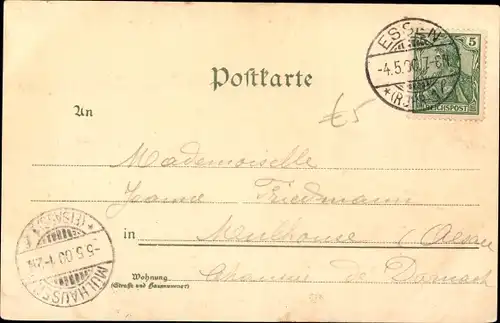 ESSEN
-4.5.00.7-8N.
*(RUHR)
5
REICHSPOST
Postkarte
£5
An
Mademoiselle
Jeanne Friedmann
in Mulhouse (Alsace
Chaussée de Dornach
Wohnung
(Straße und Hausnummer)
*(ELSASS)
-5.5.00.1-2N
MÜLHAUSEN